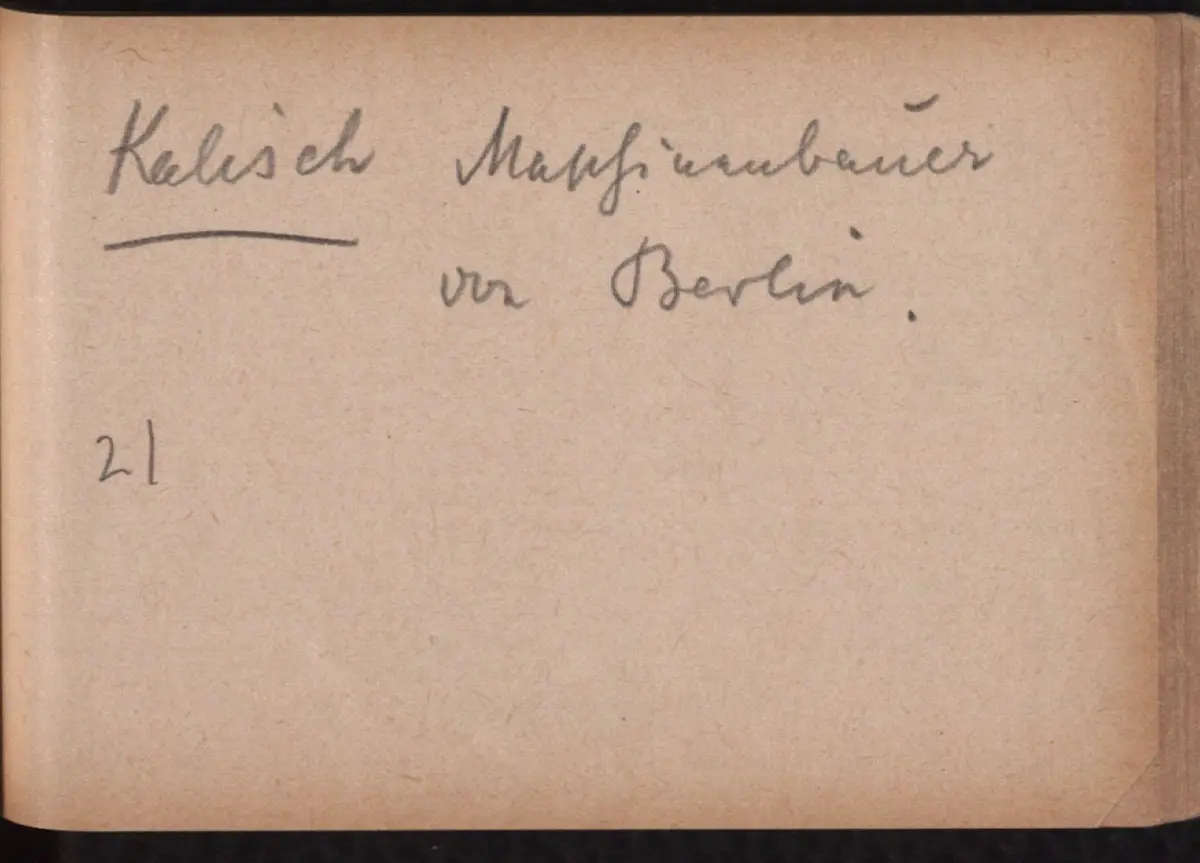 Kalisch Maschinenbauer
von Berlin.
21